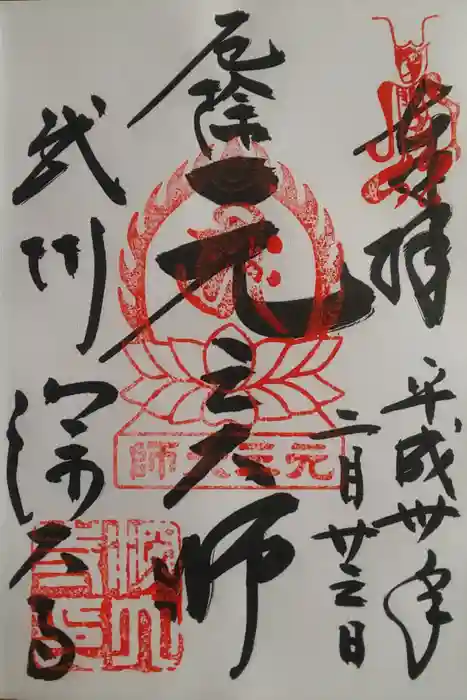 奉拝
平成卅年
二月廿三日
厄除元三大師
元三大師
武州深大寺